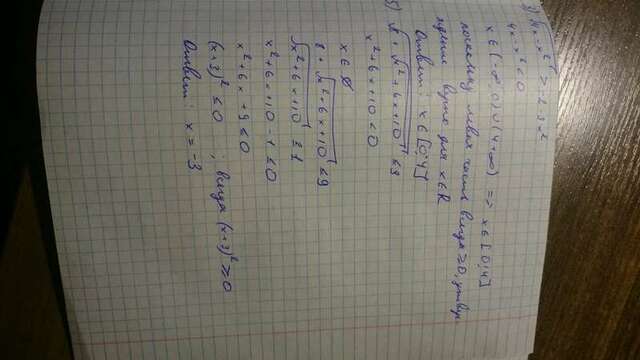 √4x-x² > -2-3x²
4x-x² < 0
x ∈ (-∞; 0) ∪ (4; +∞) => x ∈ [0; 4]
поскольку левая часть всегда ≥ 0, утвер
ждение верно для x ∈ R
Ответ: x ∈ [0; 4]
б) √8 + √x²+6x+10 ≤ 3
x²+6x+10 < 0
x ∈ ∅
8 + √x²+6x+10 ≤ 9
√x²+6x+10 ≤ 1
x²+6x+10-1 ≤ 0
x²+6x+9 ≤ 0
(x+3)² ≤ 0 ; всегда (x+3)² ≥ 0
Ответ: x = -3